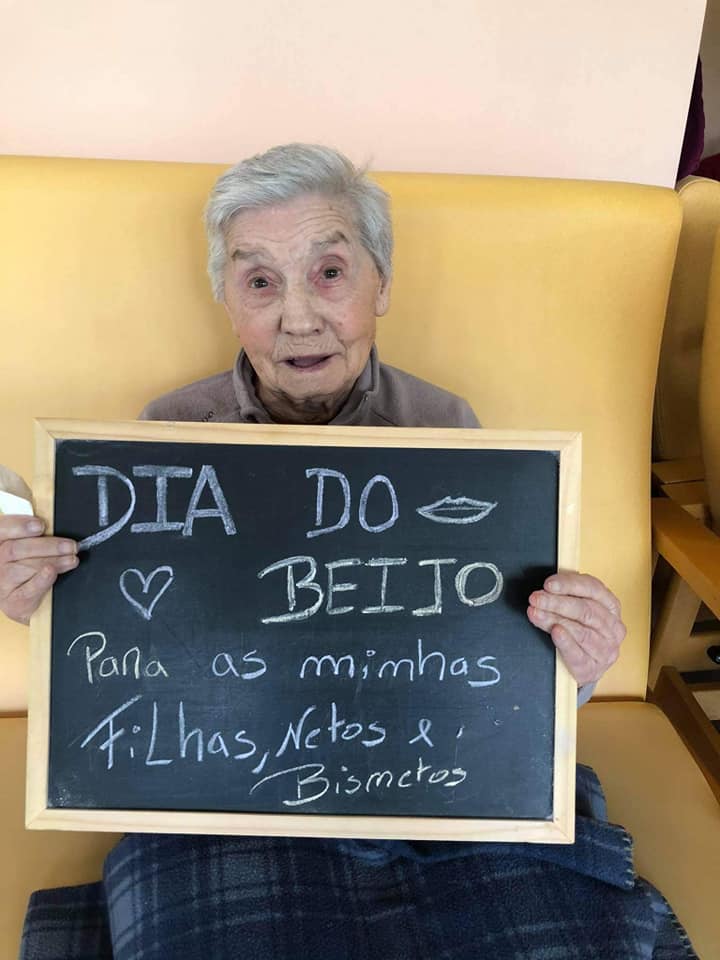 DIA DO
BEIJO
Para as minhas
Filhas, Netos e
Bisnetos